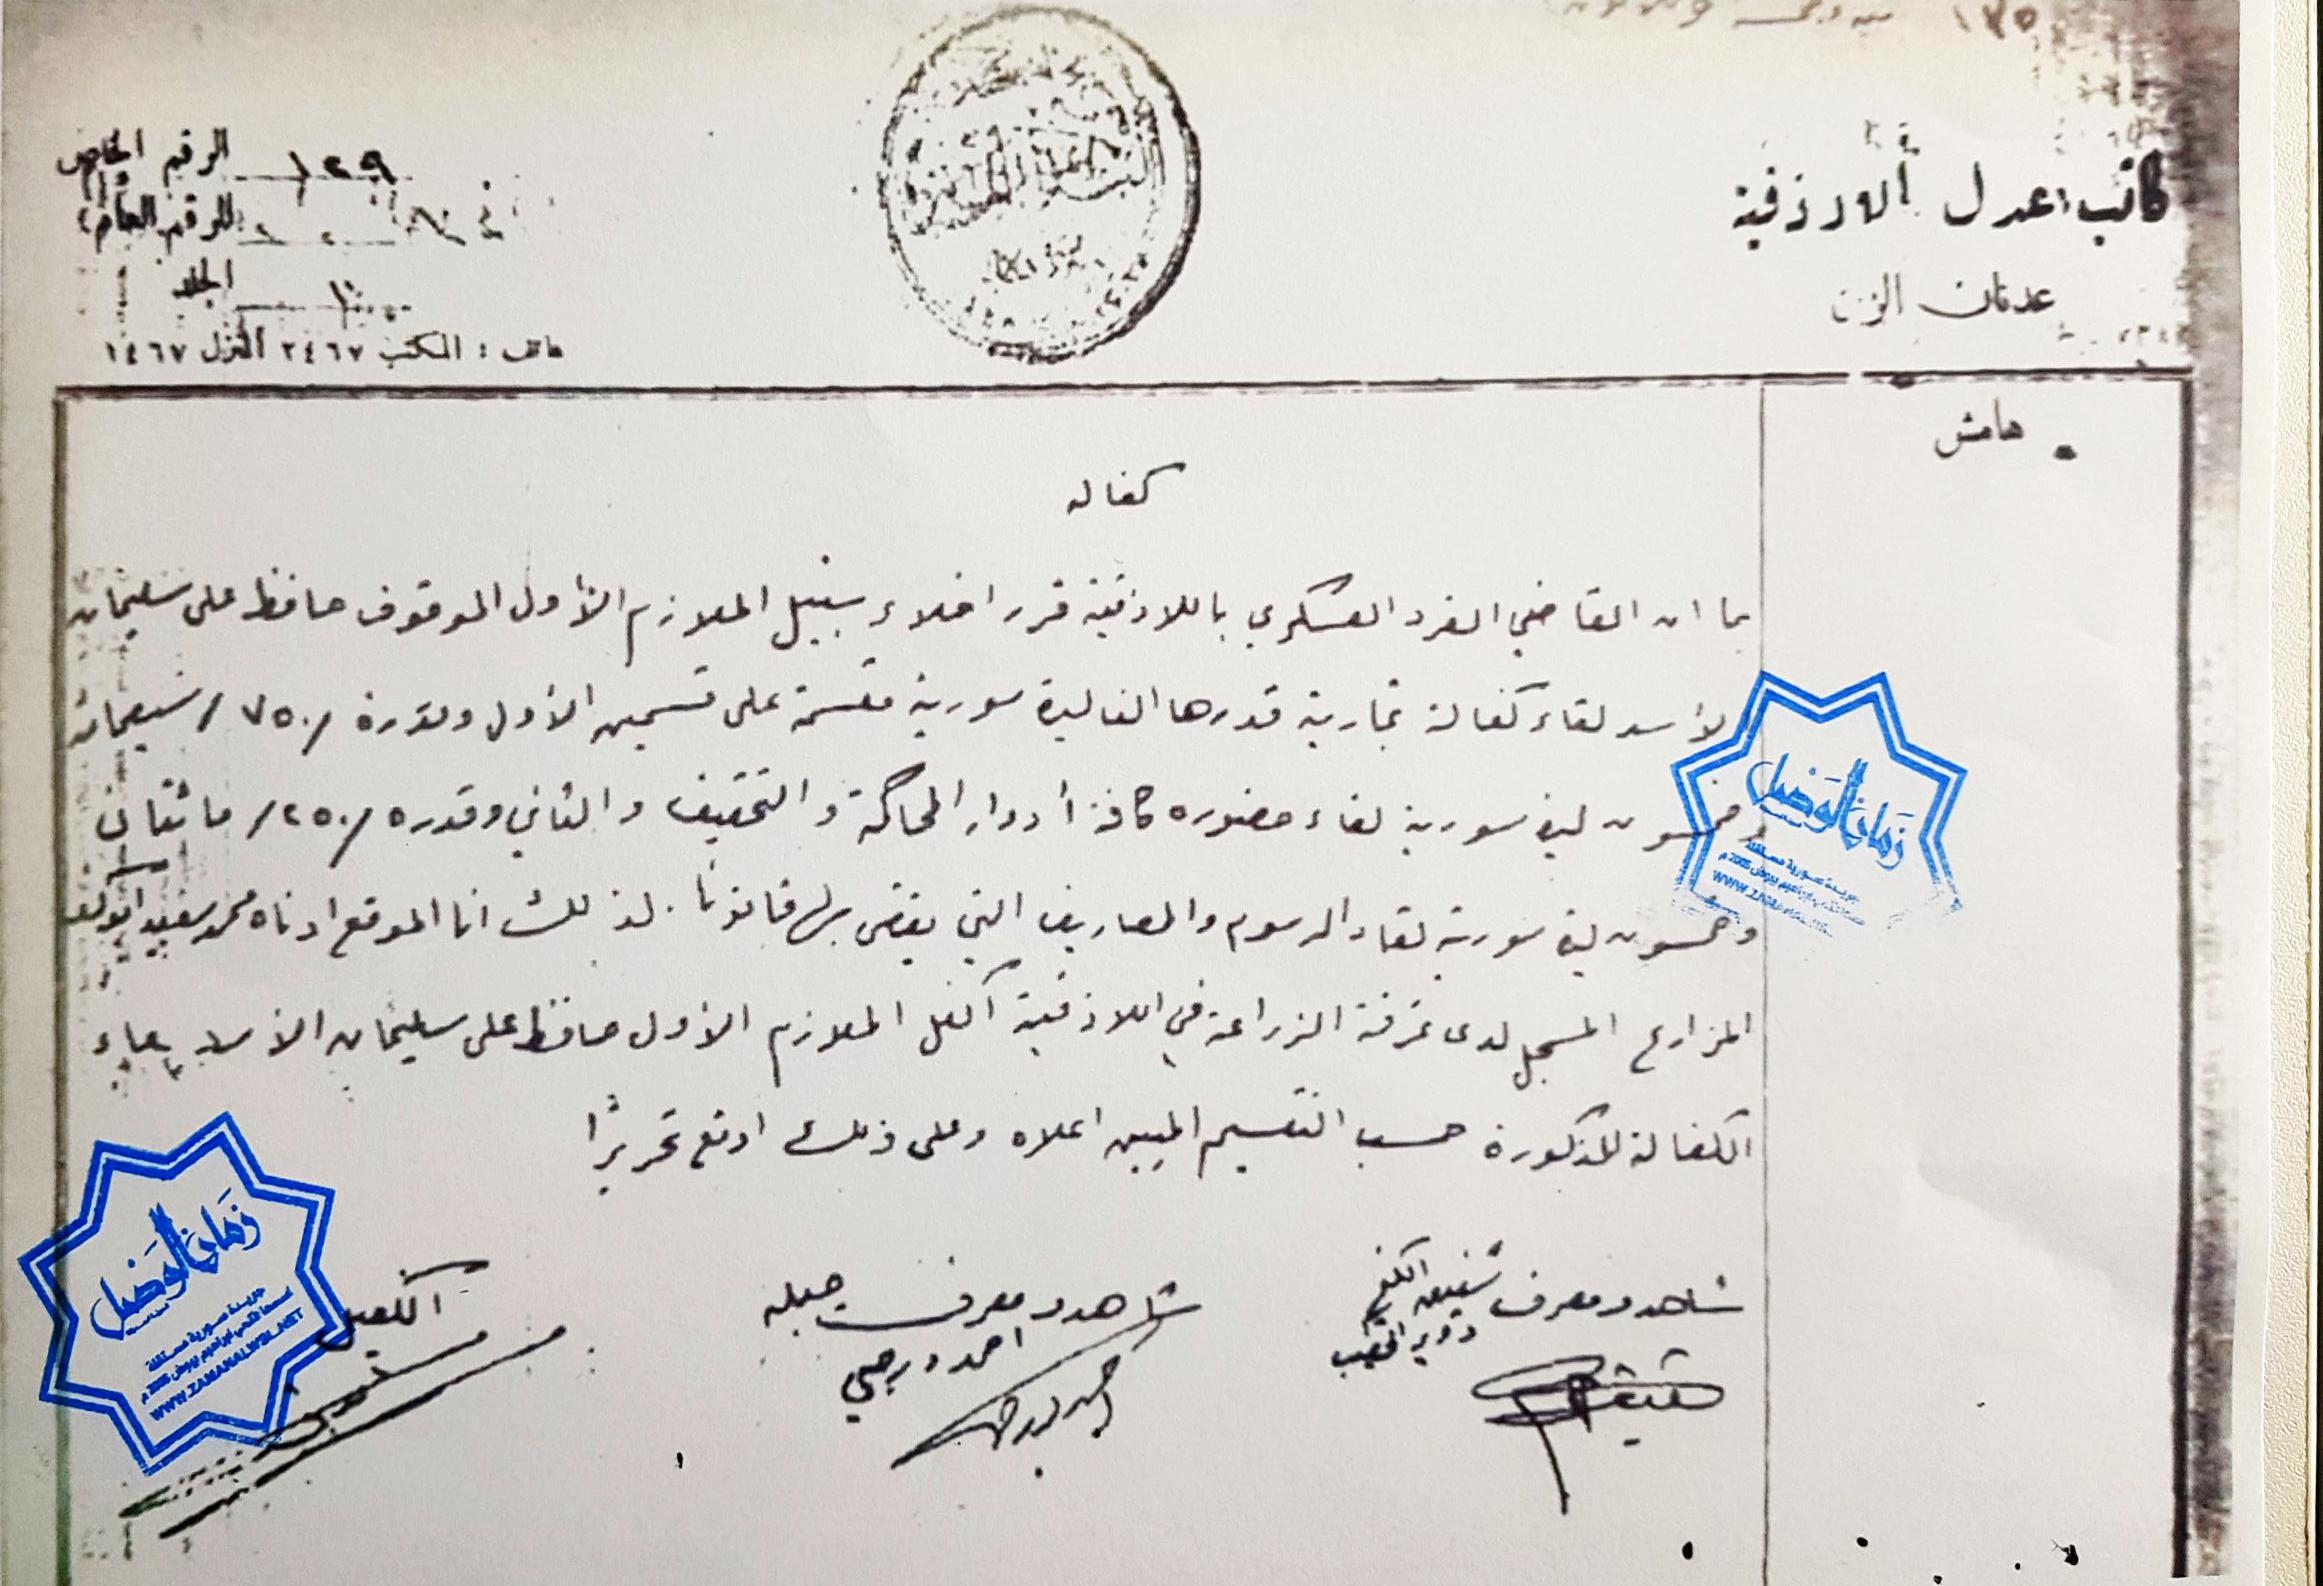 كاتب عدل اللاذقية
عدنان الزين
الرقم الخاص ١٢٩
الرقم العام
الجلد ١٠
هاتف : المكتب ٢٤٦٧ المنزل ١٤٦٧
هامش
كفاله
بما ان القاضي الفرد العسكري باللاذقية قرر اخلاء سبيل الملازم الأول الموقوف حافظ علي سليمان
الأسد لقاء كفالة تجارية قدرها الف ليرة سورية مقسمة على قسمين الأول وقدره /٧٥٠/ سبعمائة
وخمسون ليرة سورية لقاء حضوره كافة أدوار المحاكمة والتحقيق والثاني وقدره /٢٥٠/ مائتان
وخمسون ليرة سورية لقاء الرسوم والمصاريف التي يقضى بها قانونا. لذلك انا الموقع ادناه محمد سعيد
المزارع المسجل لدى غرفة الزراعة في اللاذقية اكفل الملازم الأول حافظ علي سليمان الأسد
الكفالة المذكورة حسب التقسيم المبين اعلاه وعلى ذلك اوقع تحريرًا
شاهد ومعرف شفيق
شاهد ومعرف جبله
الكفيل
زمان الوصل
جريدة سورية مستقلة
زمان الوصل
جريدة سورية مستقلة
أسسها فتحي ابراهيم بيوض 2005 م
WWW.ZAMANALWSL.NET